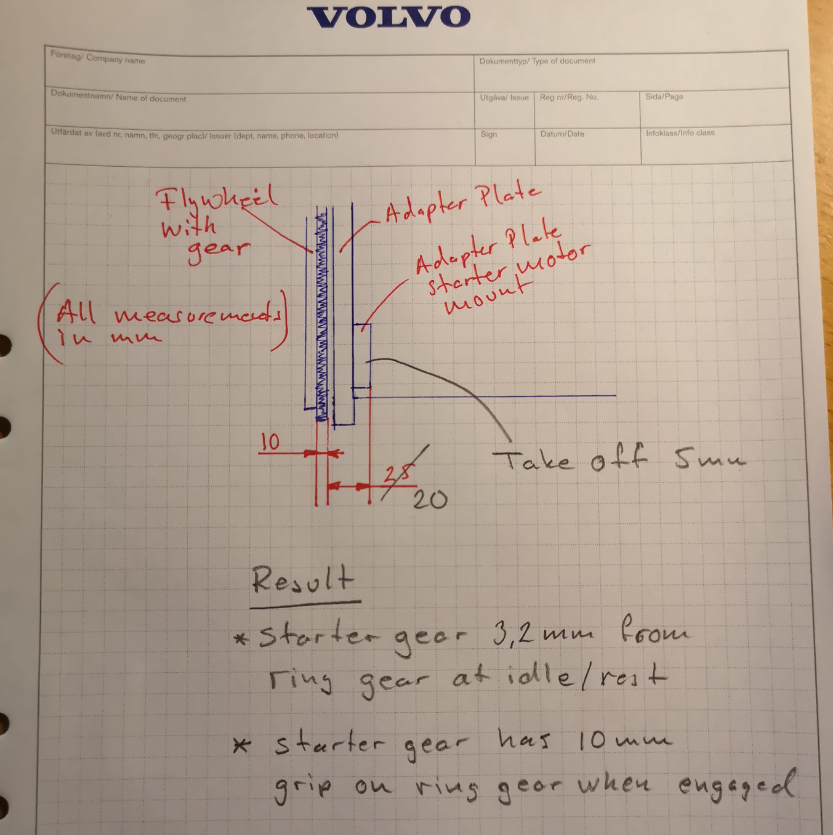 VOLVO
Företag/ Company name
Dokumenttyp/ Type of document
Dokumentnamn/ Name of document
Utgåva/ Issue
Reg nr/Reg. No.
Sida/Page
Utfärdat av (avd nr, namn, tfn, geogr plac)/ Issuer (dept, name, phone, location)
Sign
Datum/Date
Infoklass/Info class
Flywheel
with
gear
Adapter Plate
Adapter Plate
starter motor
mount
(All measurements
in mm)
10
25
20
Take off 5mm
Result
* Starter gear 3,2 mm from
ring gear at idle/rest
* starter gear has 10 mm
grip on ring gear when engaged